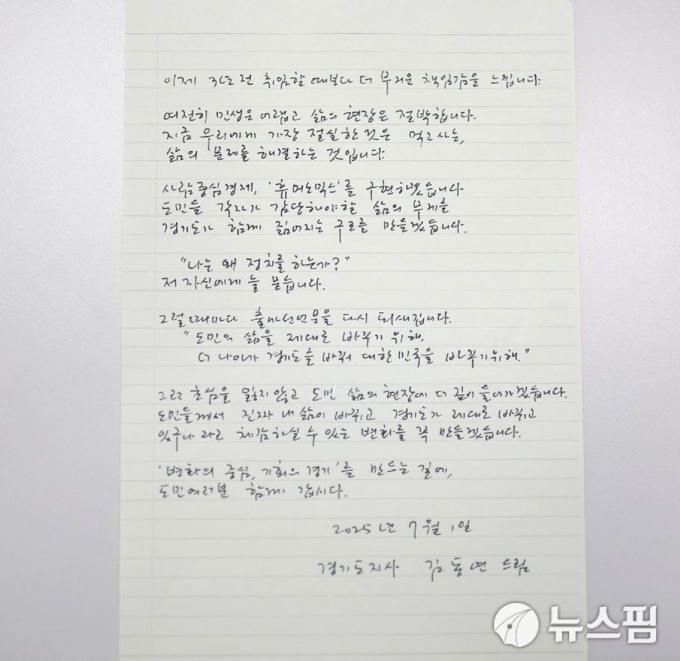 이제 3년 전 취임할 때보다 더 무거운 책임감을 느낍니다.
여전히 민생은 어렵고 삶의 현장은 절박합니다.
지금 우리에게 가장 절실한 것은 먹고사는,
삶의 문제를 해결하는 것입니다.
사람중심경제, '휴머노믹스'를 구현하겠습니다
도민들 각자가 감당해야할 삶의 무게를
경기도가 함께 짊어지는 구조를 만들겠습니다.
"나는 왜 정치를 하는가?"
저 자신에게 늘 묻습니다.
그럴때마다 출마선언문을 다시 되새깁니다.
"도민의 삶을 제대로 바꾸기 위해,
더 나아가 경기도를 바꿔 대한민국을 바꾸기 위해."
그 초심을 잃지 않고 도민 삶의 현장에 더 깊이 들어가겠습니다.
도민들께서 진짜 내 삶이 바뀌고 경기도가 제대로 바뀌고
있구나 라고 체감하실 수 있는 변화를 꼭 만들겠습니다.
'변화의 중심, 기회의 경기'를 만드는 길에,
도민여러분 함께 갑시다.
2025년 7월 1일
경기도지사 김동연 드림
뉴스핌